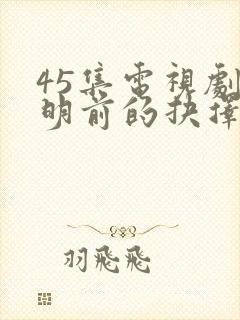 45集電視劇
明前的抉擇
羽飛飛